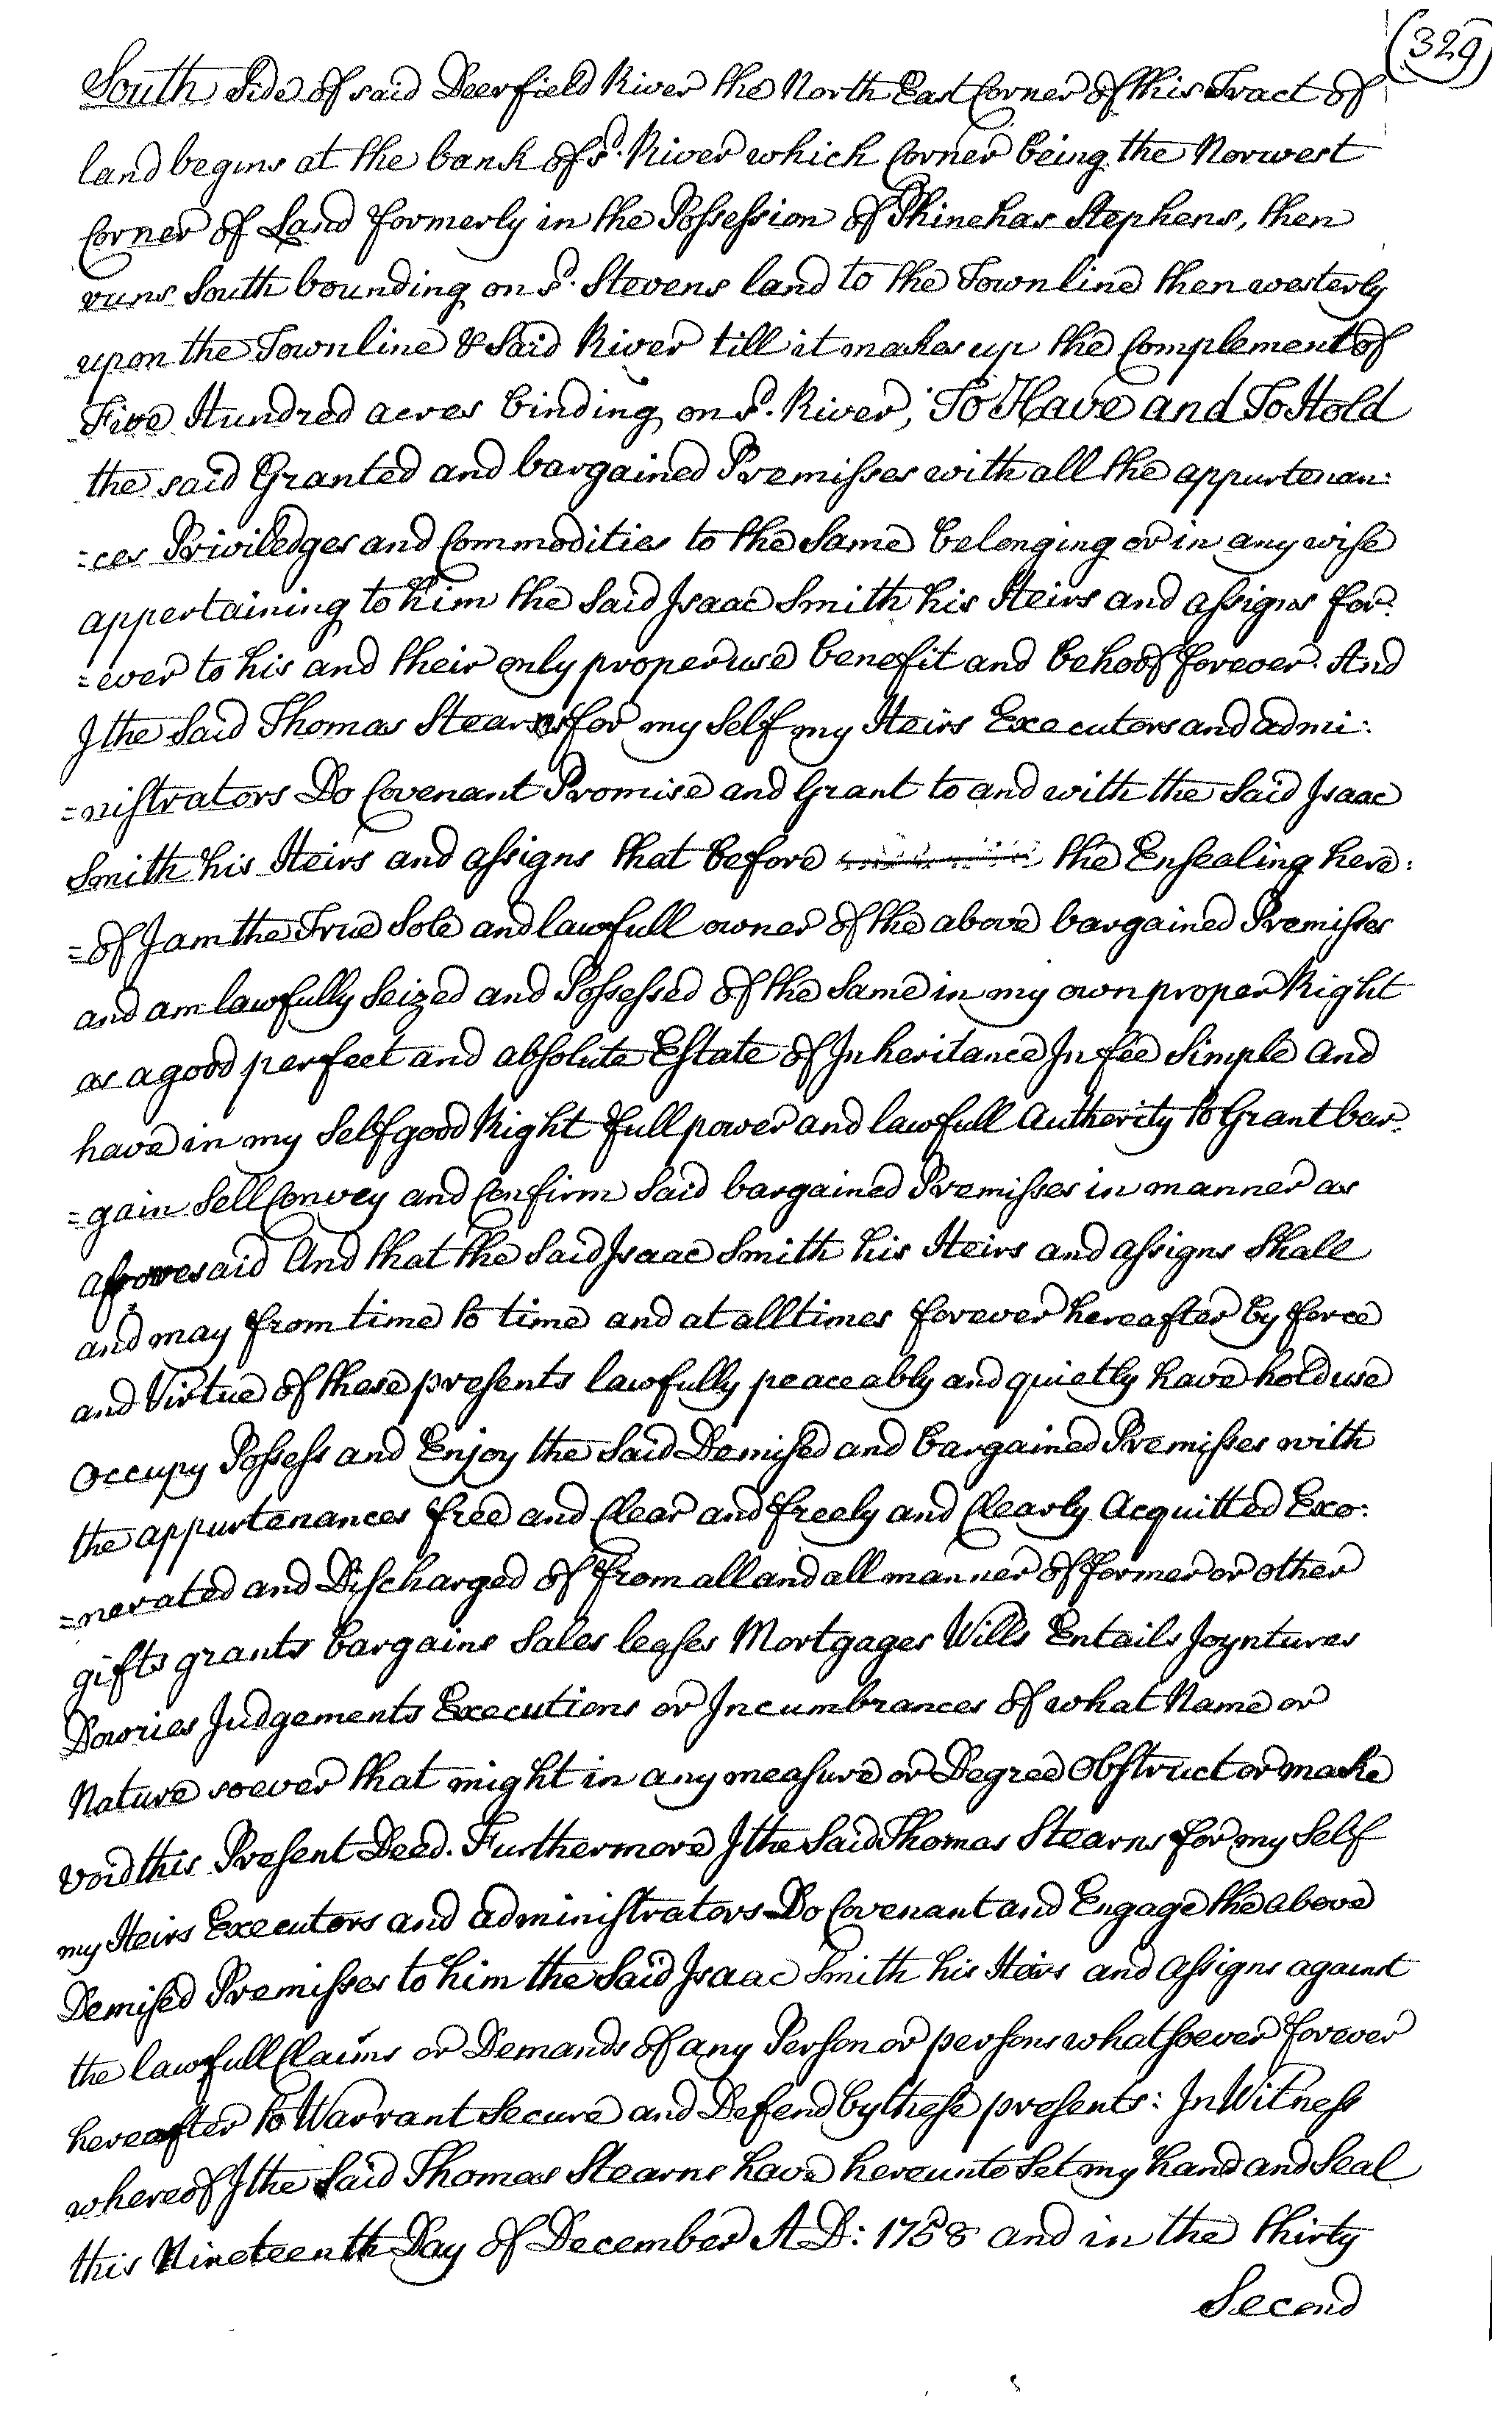 (329)
South Side of said Deerfield River the North East Corner of this Tract of
land begins at the bank of sd. River which Corner being the Norwest
Corner of Land formerly in the Possession of Phinehas Stephens, then
runs South bounding on sd. Stevens land to the Townline then westerly
upon the Townline & Said River till it makes up the Complement of
Five Hundred acres binding on sd. River; To Have and To Hold
the said Granted and bargained Premisses with all the appurtenan:
=ces Priviledges and Commodities to the Same belonging or in any wise
appertaining to him the Said Isaac Smith his Heirs and assigns for:
=ever to his and their only proper use benefit and behoof forever. And
I the Said Thomas Stearns for my Self my Heirs Executors and admi:
=nistrators Do Covenant Promise and Grant to and with the Said Isaac
Smith his Heirs and assigns that before the Ensealing here:
=of I am the True Sole and lawfull owner of the above bargained Premisses
and am lawfully Seized and Possessed of the Same in my own proper Right
as a good perfect and absolute Estate of Inheritance In fee Simple and
have in my Self good Right full power and lawfull Authority to Grant bar:
=gain Sell Convey and Confirm Said bargained Premisses in manner as
aforesaid And that the Said Isaac Smith his Heirs and assigns Shall
and may from time to time and at all times forever hereafter by force
and Virtue of these presents lawfully peaceably and quietly have hold use
Occupy Possess and Enjoy the Said Demised and bargained Premisses with
the appurtenances free and Clear and freely and Clearly Acquitted Exo:
=nerated and Discharged of from all and all manner of former or other
gifts grants bargains Sales leases Mortgages Wills Entails Joyntures
Dowries Judgements Executions or Incumbrances of what Name or
Nature soever that might in any measure or Degree Obstruct or make
void this Present Deed. Furthermore I the Said Thomas Stearns for my Self
my Heirs Executors and administrators Do Covenant and Engage the above
Demised Premisses to him the Said Isaac Smith his Heirs and Assigns against
the lawfull Claims or Demands of any Person or persons whatsoever forever
hereafter to Warrant Secure and Defend by these presents: In Witness
whereof I the Said Thomas Stearns have hereunto Set my hand and Seal
this Nineteenth Day of December A D: 1758 and in the thirty
Second